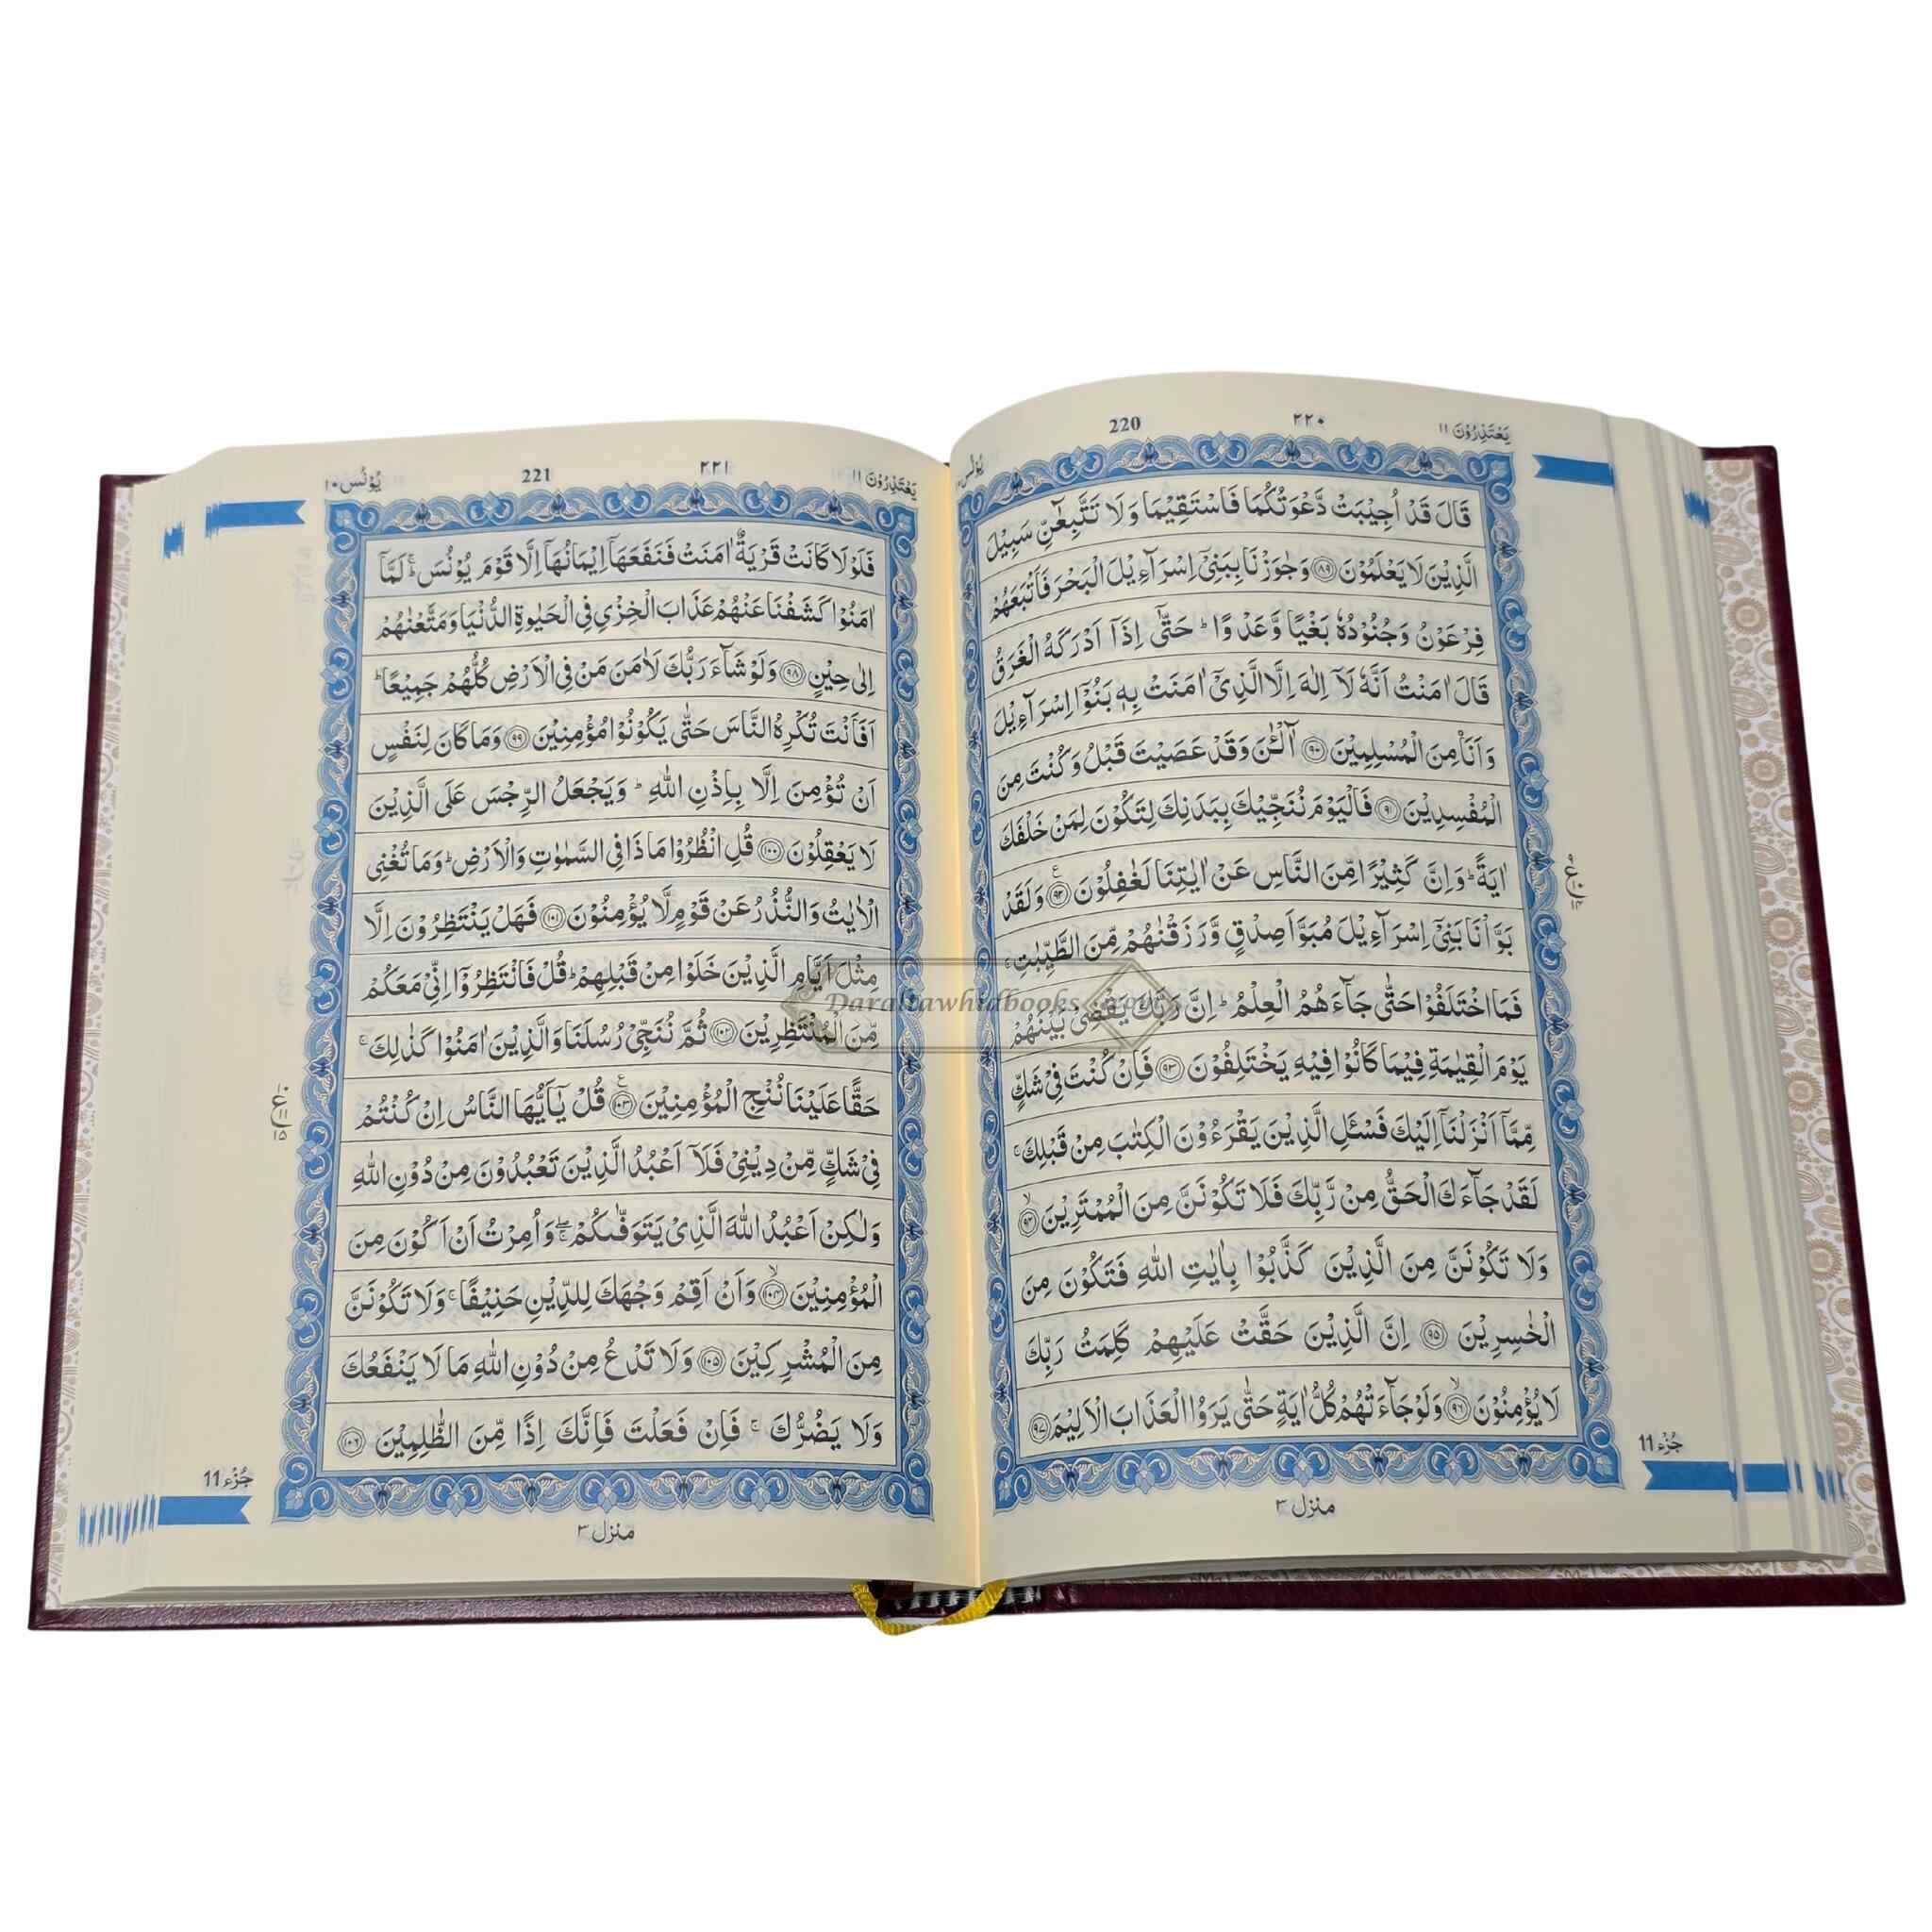 يَعْتَذِرُوْنَ ١١
٢٢٠
220
يُوْنُس
قَالَ قَدْ اُجِيْبَتْ دَّعْوَتُكُمَا فَاسْتَقِيْمَا وَلَا تَتَّبِعٰٓنِّ سَبِيْلَ
الَّذِيْنَ لَا يَعْلَمُوْنَ ﴿٨٩﴾ وَجٰوَزْنَا بِبَنِيْٓ اِسْرَآءِيْلَ الْبَحْرَ فَاَتْبَعَهُمْ
فِرْعَوْنُ وَجُنُوْدُهٗ بَغْيًا وَّعَدْوًا ؕ حَتّٰٓى اِذَآ اَدْرَكَهُ الْغَرَقُ
قَالَ اٰمَنْتُ اَنَّهٗ لَآ اِلٰهَ اِلَّا الَّذِيْٓ اٰمَنَتْ بِهٖ بَنُوْٓا اِسْرَآءِيْلَ
وَاَنَا۠ مِنَ الْمُسْلِمِيْنَ ﴿٩٠﴾ آٰلْـٰٔنَ وَقَدْ عَصَيْتَ قَبْلُ وَكُنْتَ مِنَ
الْمُفْسِدِيْنَ ﴿٩١﴾ فَالْيَوْمَ نُنَجِّيْكَ بِبَدَنِكَ لِتَكُوْنَ لِمَنْ خَلْفَكَ
اٰيَةً ؕ وَاِنَّ كَثِيْرًا مِّنَ النَّاسِ عَنْ اٰيٰتِنَا لَغٰفِلُوْنَ ﴿٩٢﴾ وَلَقَدْ
بَوَّاْنَا بَنِيْٓ اِسْرَآءِيْلَ مُبَوَّاَ صِدْقٍ وَّرَزَقْنٰهُمْ مِّنَ الطَّيِّبٰتِ ۚ
فَمَا اخْتَلَفُوْا حَتّٰى جَآءَهُمُ الْعِلْمُ ؕ اِنَّ رَبَّكَ يَقْضِيْ بَيْنَهُمْ
يَوْمَ الْقِيٰمَةِ فِيْمَا كَانُوْا فِيْهِ يَخْتَلِفُوْنَ ﴿٩٣﴾ فَاِنْ كُنْتَ فِيْ شَكٍّ
مِّمَّآ اَنْزَلْنَآ اِلَيْكَ فَسْـَٔلِ الَّذِيْنَ يَقْرَءُوْنَ الْكِتٰبَ مِنْ قَبْلِكَ ۚ
لَقَدْ جَآءَكَ الْحَقُّ مِنْ رَّبِّكَ فَلَا تَكُوْنَنَّ مِنَ الْمُمْتَرِيْنَ ﴿٩٤﴾ۙ
وَلَا تَكُوْنَنَّ مِنَ الَّذِيْنَ كَذَّبُوْا بِاٰيٰتِ اللّٰهِ فَتَكُوْنَ مِنَ
الْخٰسِرِيْنَ ﴿٩٥﴾ اِنَّ الَّذِيْنَ حَقَّتْ عَلَيْهِمْ كَلِمَتُ رَبِّكَ
لَا يُؤْمِنُوْنَ ﴿٩٦﴾ۙ وَلَوْ جَآءَتْهُمْ كُلُّ اٰيَةٍ حَتّٰى يَرَوُا الْعَذَابَ الْاَلِيْمَ ﴿٩٧﴾
جُزْء 11
منزل ٣
يَعْتَذِرُوْنَ ١١
٢٢١
221
يُوْنُس ١٠
فَلَوْلَا كَانَتْ قَرْيَةٌ اٰمَنَتْ فَنَفَعَهَآ اِيْمَانُهَآ اِلَّا قَوْمَ يُوْنُسَ ؕ لَمَّآ
اٰمَنُوْا كَشَفْنَا عَنْهُمْ عَذَابَ الْخِزْيِ فِي الْحَيٰوةِ الدُّنْيَا وَمَتَّعْنٰهُمْ
اِلٰى حِيْنٍ ﴿٩٨﴾ وَلَوْ شَآءَ رَبُّكَ لَاٰمَنَ مَنْ فِي الْاَرْضِ كُلُّهُمْ جَمِيْعًا ؕ
اَفَاَنْتَ تُكْرِهُ النَّاسَ حَتّٰى يَكُوْنُوْا مُؤْمِنِيْنَ ﴿٩٩﴾ وَمَا كَانَ لِنَفْسٍ
اَنْ تُؤْمِنَ اِلَّا بِاِذْنِ اللّٰهِ ؕ وَيَجْعَلُ الرِّجْسَ عَلَى الَّذِيْنَ
لَا يَعْقِلُوْنَ ﴿١٠٠﴾ قُلِ انْظُرُوْا مَاذَا فِي السَّمٰوٰتِ وَالْاَرْضِ ؕ وَمَا تُغْنِي
الْاٰيٰتُ وَالنُّذُرُ عَنْ قَوْمٍ لَّا يُؤْمِنُوْنَ ﴿١٠١﴾ فَهَلْ يَنْتَظِرُوْنَ اِلَّا
مِثْلَ اَيَّامِ الَّذِيْنَ خَلَوْا مِنْ قَبْلِهِمْ ؕ قُلْ فَانْتَظِرُوْٓا اِنِّيْ مَعَكُمْ
مِّنَ الْمُنْتَظِرِيْنَ ﴿١٠٢﴾ ثُمَّ نُنَجِّيْ رُسُلَنَا وَالَّذِيْنَ اٰمَنُوْا كَذٰلِكَ ۚ
حَقًّا عَلَيْنَا نُنْجِ الْمُؤْمِنِيْنَ ﴿١٠٣﴾ قُلْ يٰٓاَيُّهَا النَّاسُ اِنْ كُنْتُمْ
فِيْ شَكٍّ مِّنْ دِيْنِيْ فَلَآ اَعْبُدُ الَّذِيْنَ تَعْبُدُوْنَ مِنْ دُوْنِ اللّٰهِ
وَلٰكِنْ اَعْبُدُ اللّٰهَ الَّذِيْ يَتَوَفّٰىكُمْ ۖۚ وَاُمِرْتُ اَنْ اَكُوْنَ مِنَ
الْمُؤْمِنِيْنَ ﴿١٠٤﴾ۙ وَاَنْ اَقِمْ وَجْهَكَ لِلدِّيْنِ حَنِيْفًا ۚ وَلَا تَكُوْنَنَّ
مِنَ الْمُشْرِكِيْنَ ﴿١٠٥﴾ وَلَا تَدْعُ مِنْ دُوْنِ اللّٰهِ مَا لَا يَنْفَعُكَ
وَلَا يَضُرُّكَ ۚ فَاِنْ فَعَلْتَ فَاِنَّكَ اِذًا مِّنَ الظّٰلِمِيْنَ ﴿١٠٦﴾
جُزْء 11
منزل ٣